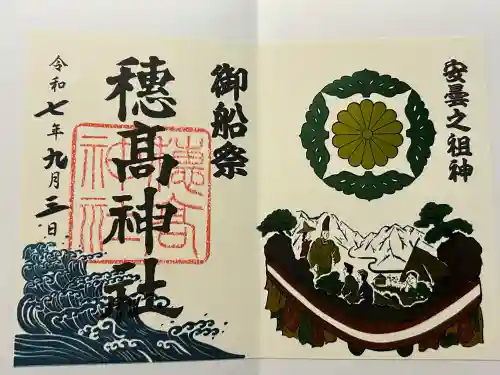 安曇之祖神
御船祭
穂髙神社
令和七年九月三日
穂高
神社